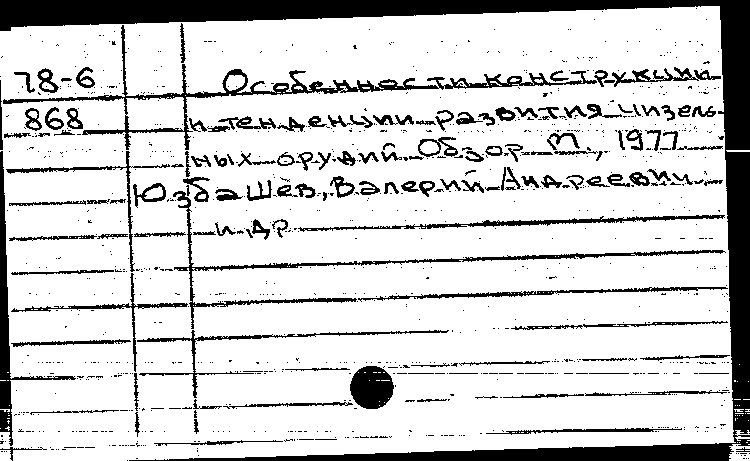 78-6 Особенности конструкции
868 и тенденции развития чизель-
ных орудий Обзор М., 1977
Юзбашев, Валерий Андреевич
и др